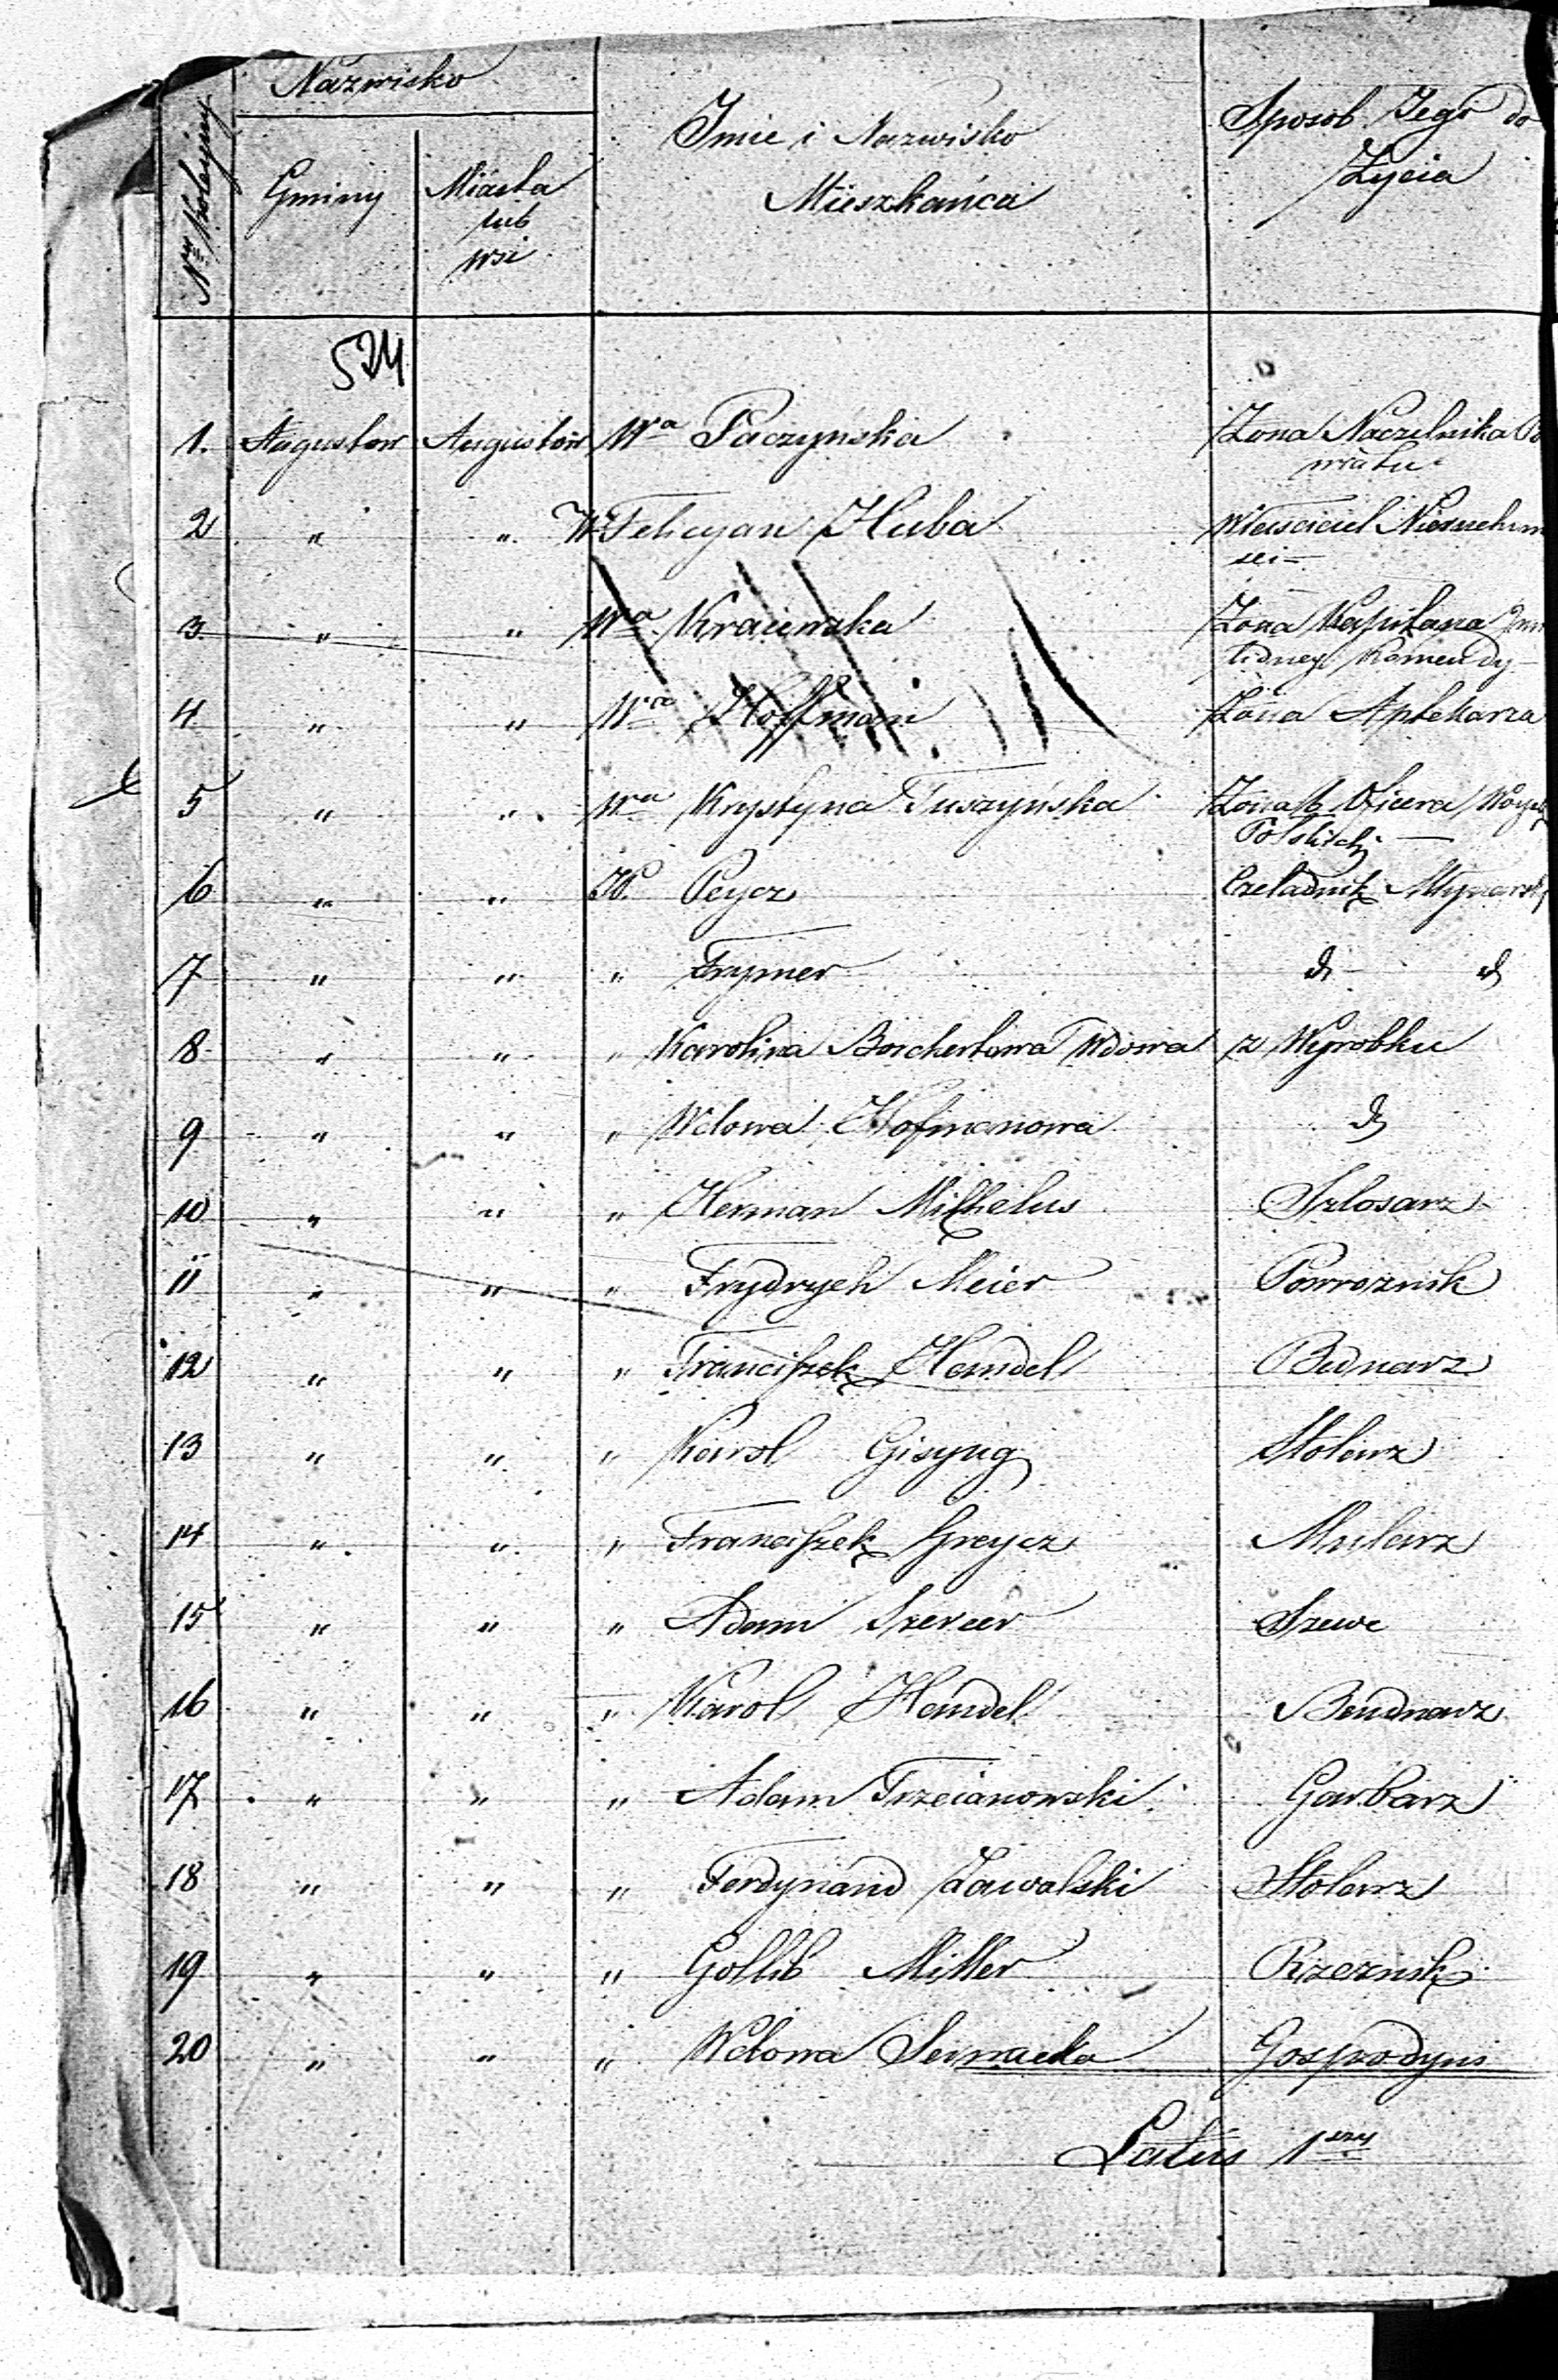 Nrr Kolejny
Nazwisko
Gminy
Miasta
lub
wsi
Imie i Nazwisko
Mieszkańca
Sposob Jego do
Życia
524
1. Augustow Augustów Wa Paczynska Żona Naczelnika Po
wiatu
2 " " W Felicyan Huba Właściciel Nieruchom
sci –
3 " " Wa Kraiewska Żona Kapitana Inwa
lidnej Komendy –
4 " " Wa Hoffman Żona Aptekarza
5 " " Wa Krystyna Tuszyńska Żona b. Oficera Woysk
Polskich –
6 " " Peycz Czeladnik Młynarsk
7 " " " Frymer do do
8 " " " Karolina Borchertowa Wdowa z Wyrobku
9 " " " Wdowa Hofmanowa do
10 " " " Herman Milhelus Szlosarz
11 " " " Frydrych Meier Powroznik
12 " " " Franciszek Hendel Bednarz
13 " " " Karol Gisyng Stolarz
14 " " " Franciszek Greycz Mularz
15 " " " Adam Szercer Szewc
16 " " " Karol Hendel Bendnarz
17 " " " Adam Trzcianowski Garbarz
18 " " " Ferdynand Zawalski Stolarz
19 " " " Gottlib Miller Rzeznik
20 " " " Wdowa Gospodyni
Latus 1szy